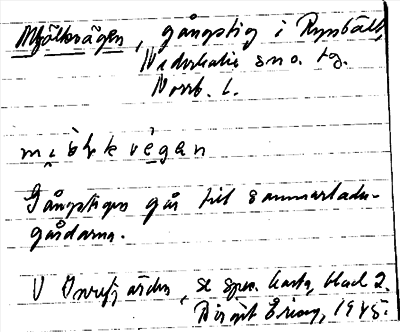 Mjölkvägen, gångstig i Rynbäll,
Nederkalix sn o. tg.
Norrb. l.
mi̯ö̀lkvégan
Gångstigen går till sommarladu-
gårdarna.
V , se spec. karta, blad 2.
Birgit Ericson, 1945.